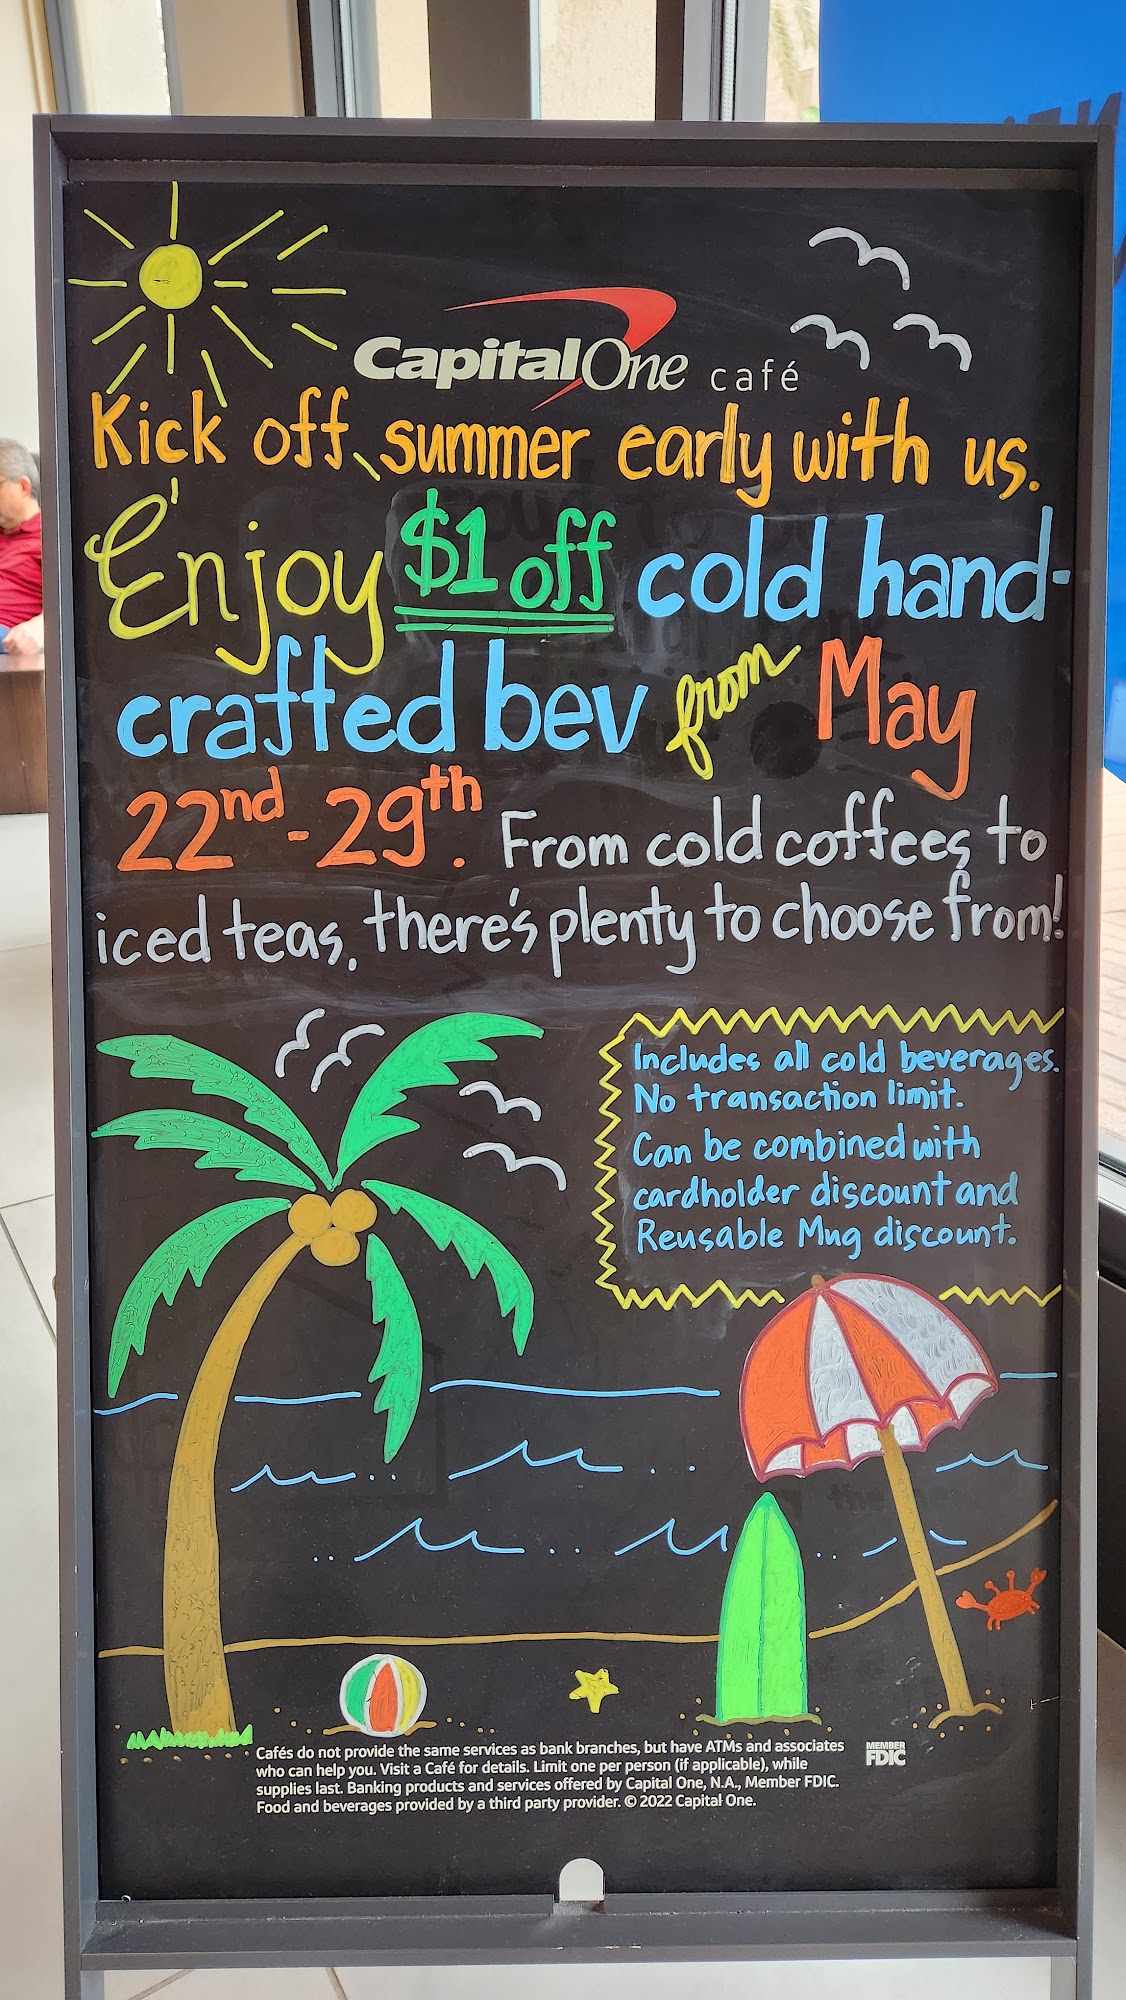 Capital One café
Kick off summer early with us.
Enjoy $1 off cold hand-
crafted bev from May
22nd-29th. From cold coffees to
iced teas, there's plenty to choose from!
Includes all cold beverages.
No transaction limit.
Can be combined with
cardholder discount and
Reusable Mug discount.
Cafés do not provide the same services as bank branches, but have ATMs and associates
who can help you. Visit a Café for details. Limit one per person (if applicable), while
supplies last. Banking products and services offered by Capital One, N.A., Member FDIC.
Food and beverages provided by a third party provider. © 2022 Capital One.
MEMBER
FDIC